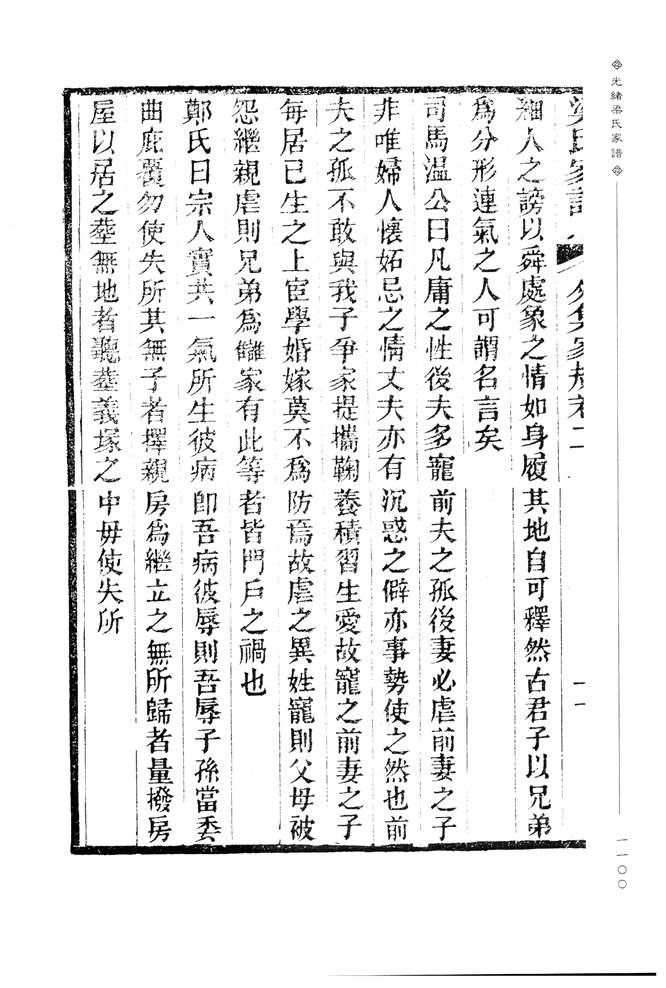 光緒梁氏家譜
一一〇〇
梁氏家譜 外集家規卷二 十一
細人之謗以舜處象之情如身履其地自可釋然古君子以兄弟
為分形連氣之人可謂名言矣
司馬温公曰凡庸之性後夫多寵前夫之孤後妻必虐前妻之子
非唯婦人懷妬忌之情丈夫亦有沉惑之僻亦事勢使之然也前
夫之孤不敢與我子爭家提攜鞠養積習生愛故寵之前妻之子
每居己生之上宦學婚嫁莫不為防焉故虐之異姓寵則父母被
怨繼親虐則兄弟為讎家有此等者皆門戶之禍也
鄭氏曰宗人實共一氣所生彼病卽吾病彼辱則吾辱子孫當委
曲庇覆勿使失所其無子者擇親房為繼立之無所歸者量撥房
屋以居之塟無地者聽塟義塚之中毋使失所